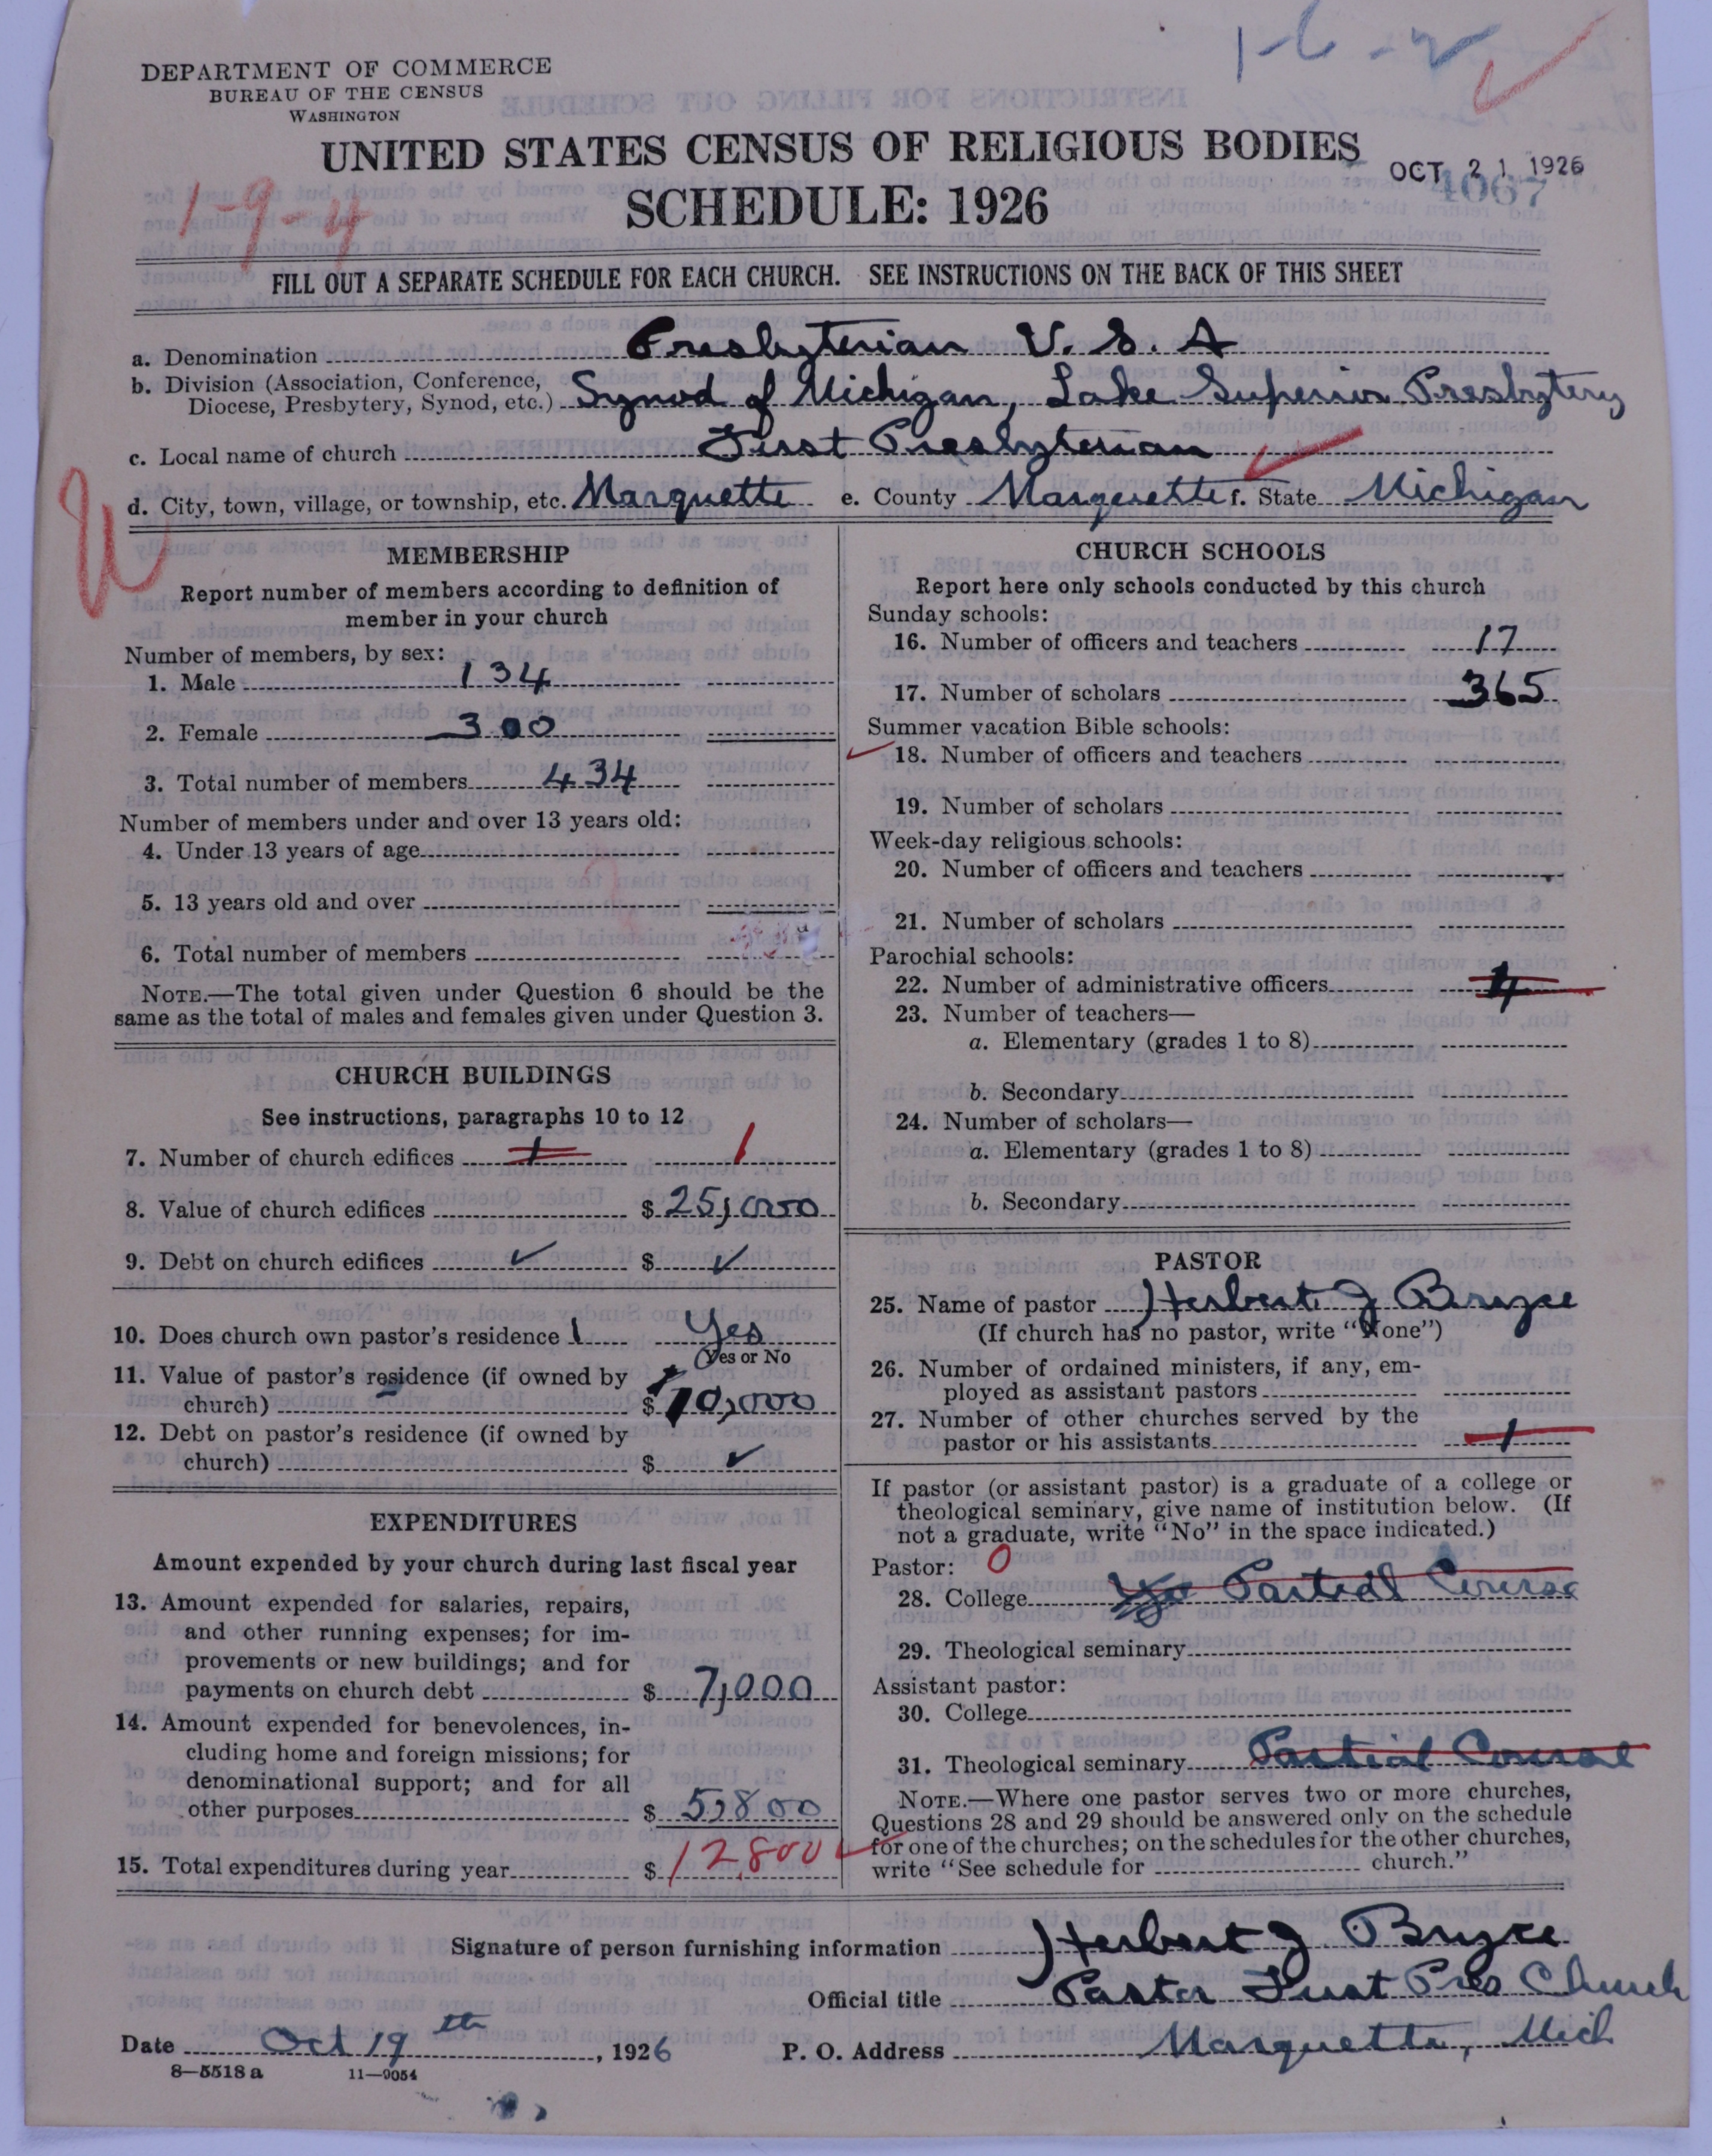 1-6-2
DEPARTMENT OF COMMERCE
BUREAU OF THE CENSUS
WASHINGTON
UNITED STATES CENSUS OF RELIGIOUS BODIES
OCT 21 1926
4067
1-9-4
SCHEDULE: 1926
FILL OUT A SEPARATE SCHEDULE FOR EACH CHURCH. SEE INSTRUCTIONS ON THE BACK OF THIS SHEET
a. Denomination Presbyterian U. S. A
b. Division (Association, Conference,
Diocese, Presbytery, Synod, etc.) Synod of Michigan, Lake Superior Presbytery
c. Local name of church First Presbyterian
d. City, town, village, or township, etc. Marquette e. County Marquette f. State Michigan
MEMBERSHIP
Report number of members according to definition of
member in your church
Number of members, by sex:
1. Male 134
2. Female 300
3. Total number of members 434
Number of members under and over 13 years old:
4. Under 13 years of age
5. 13 years old and over
6. Total number of members
NOTE.—The total given under Question 6 should be the
same as the total of males and females given under Question 3.
CHURCH BUILDINGS
See instructions, paragraphs 10 to 12
7. Number of church edifices 1 1
8. Value of church edifices $ 25,000
9. Debt on church edifices ✓ $ ✓
10. Does church own pastor's residence 1 Yes
Yes or No
11. Value of pastor's residence (if owned by
church) $ 10,000
12. Debt on pastor's residence (if owned by
church) $ ✓
EXPENDITURES
Amount expended by your church during last fiscal year
13. Amount expended for salaries, repairs,
and other running expenses; for im-
provements or new buildings; and for
payments on church debt $ 7,000
14. Amount expended for benevolences, in-
cluding home and foreign missions; for
denominational support; and for all
other purposes $ 5,800
15. Total expenditures during year $ 12,800
CHURCH SCHOOLS
Report here only schools conducted by this church
Sunday schools:
16. Number of officers and teachers 17
17. Number of scholars 365
Summer vacation Bible schools:
18. Number of officers and teachers
19. Number of scholars
Week-day religious schools:
20. Number of officers and teachers
21. Number of scholars
Parochial schools:
22. Number of administrative officers
23. Number of teachers—
a. Elementary (grades 1 to 8)
b. Secondary
24. Number of scholars—
a. Elementary (grades 1 to 8)
b. Secondary
PASTOR
25. Name of pastor Herbert J Bryce
(If church has no pastor, write "None")
26. Number of ordained ministers, if any, em-
ployed as assistant pastors
27. Number of other churches served by the
pastor or his assistants 1
If pastor (or assistant pastor) is a graduate of a college or
theological seminary, give name of institution below. (If
not a graduate, write "No" in the space indicated.)
Pastor: 0
28. College Partial Course
29. Theological seminary
Assistant pastor:
30. College
31. Theological seminary Partial Course
NOTE.—Where one pastor serves two or more churches,
Questions 28 and 29 should be answered only on the schedule
for one of the churches; on the schedules for the other churches,
write "See schedule for church."
Signature of person furnishing information Herbert J Bryce
Official title Pastor First Pres Church
Date Oct 19th, 1926 P. O. Address Marquette, Mich
8—5518 a 11—9054